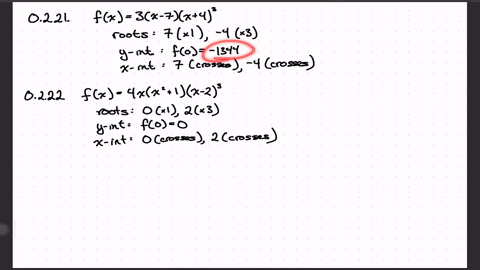 0.2.21. f(x) = 3(x-7)(x+4)³
roots: 7 (x1), -4 (x3)
y-int: f(0) = -1344
x-int: 7 (crosses), -4 (crosses)
0.2.22 f(x) = 4x(x²+1)(x-2)³
roots: 0 (x1), 2 (x3)
y-int: f(0) = 0
x-int: 0 (crosses), 2 (crosses)